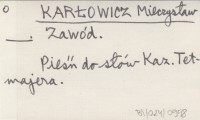 O KARŁOWICZ Mieczysław
___. Zawód.
Pieśń do słów Kaz. Tet-
majera.